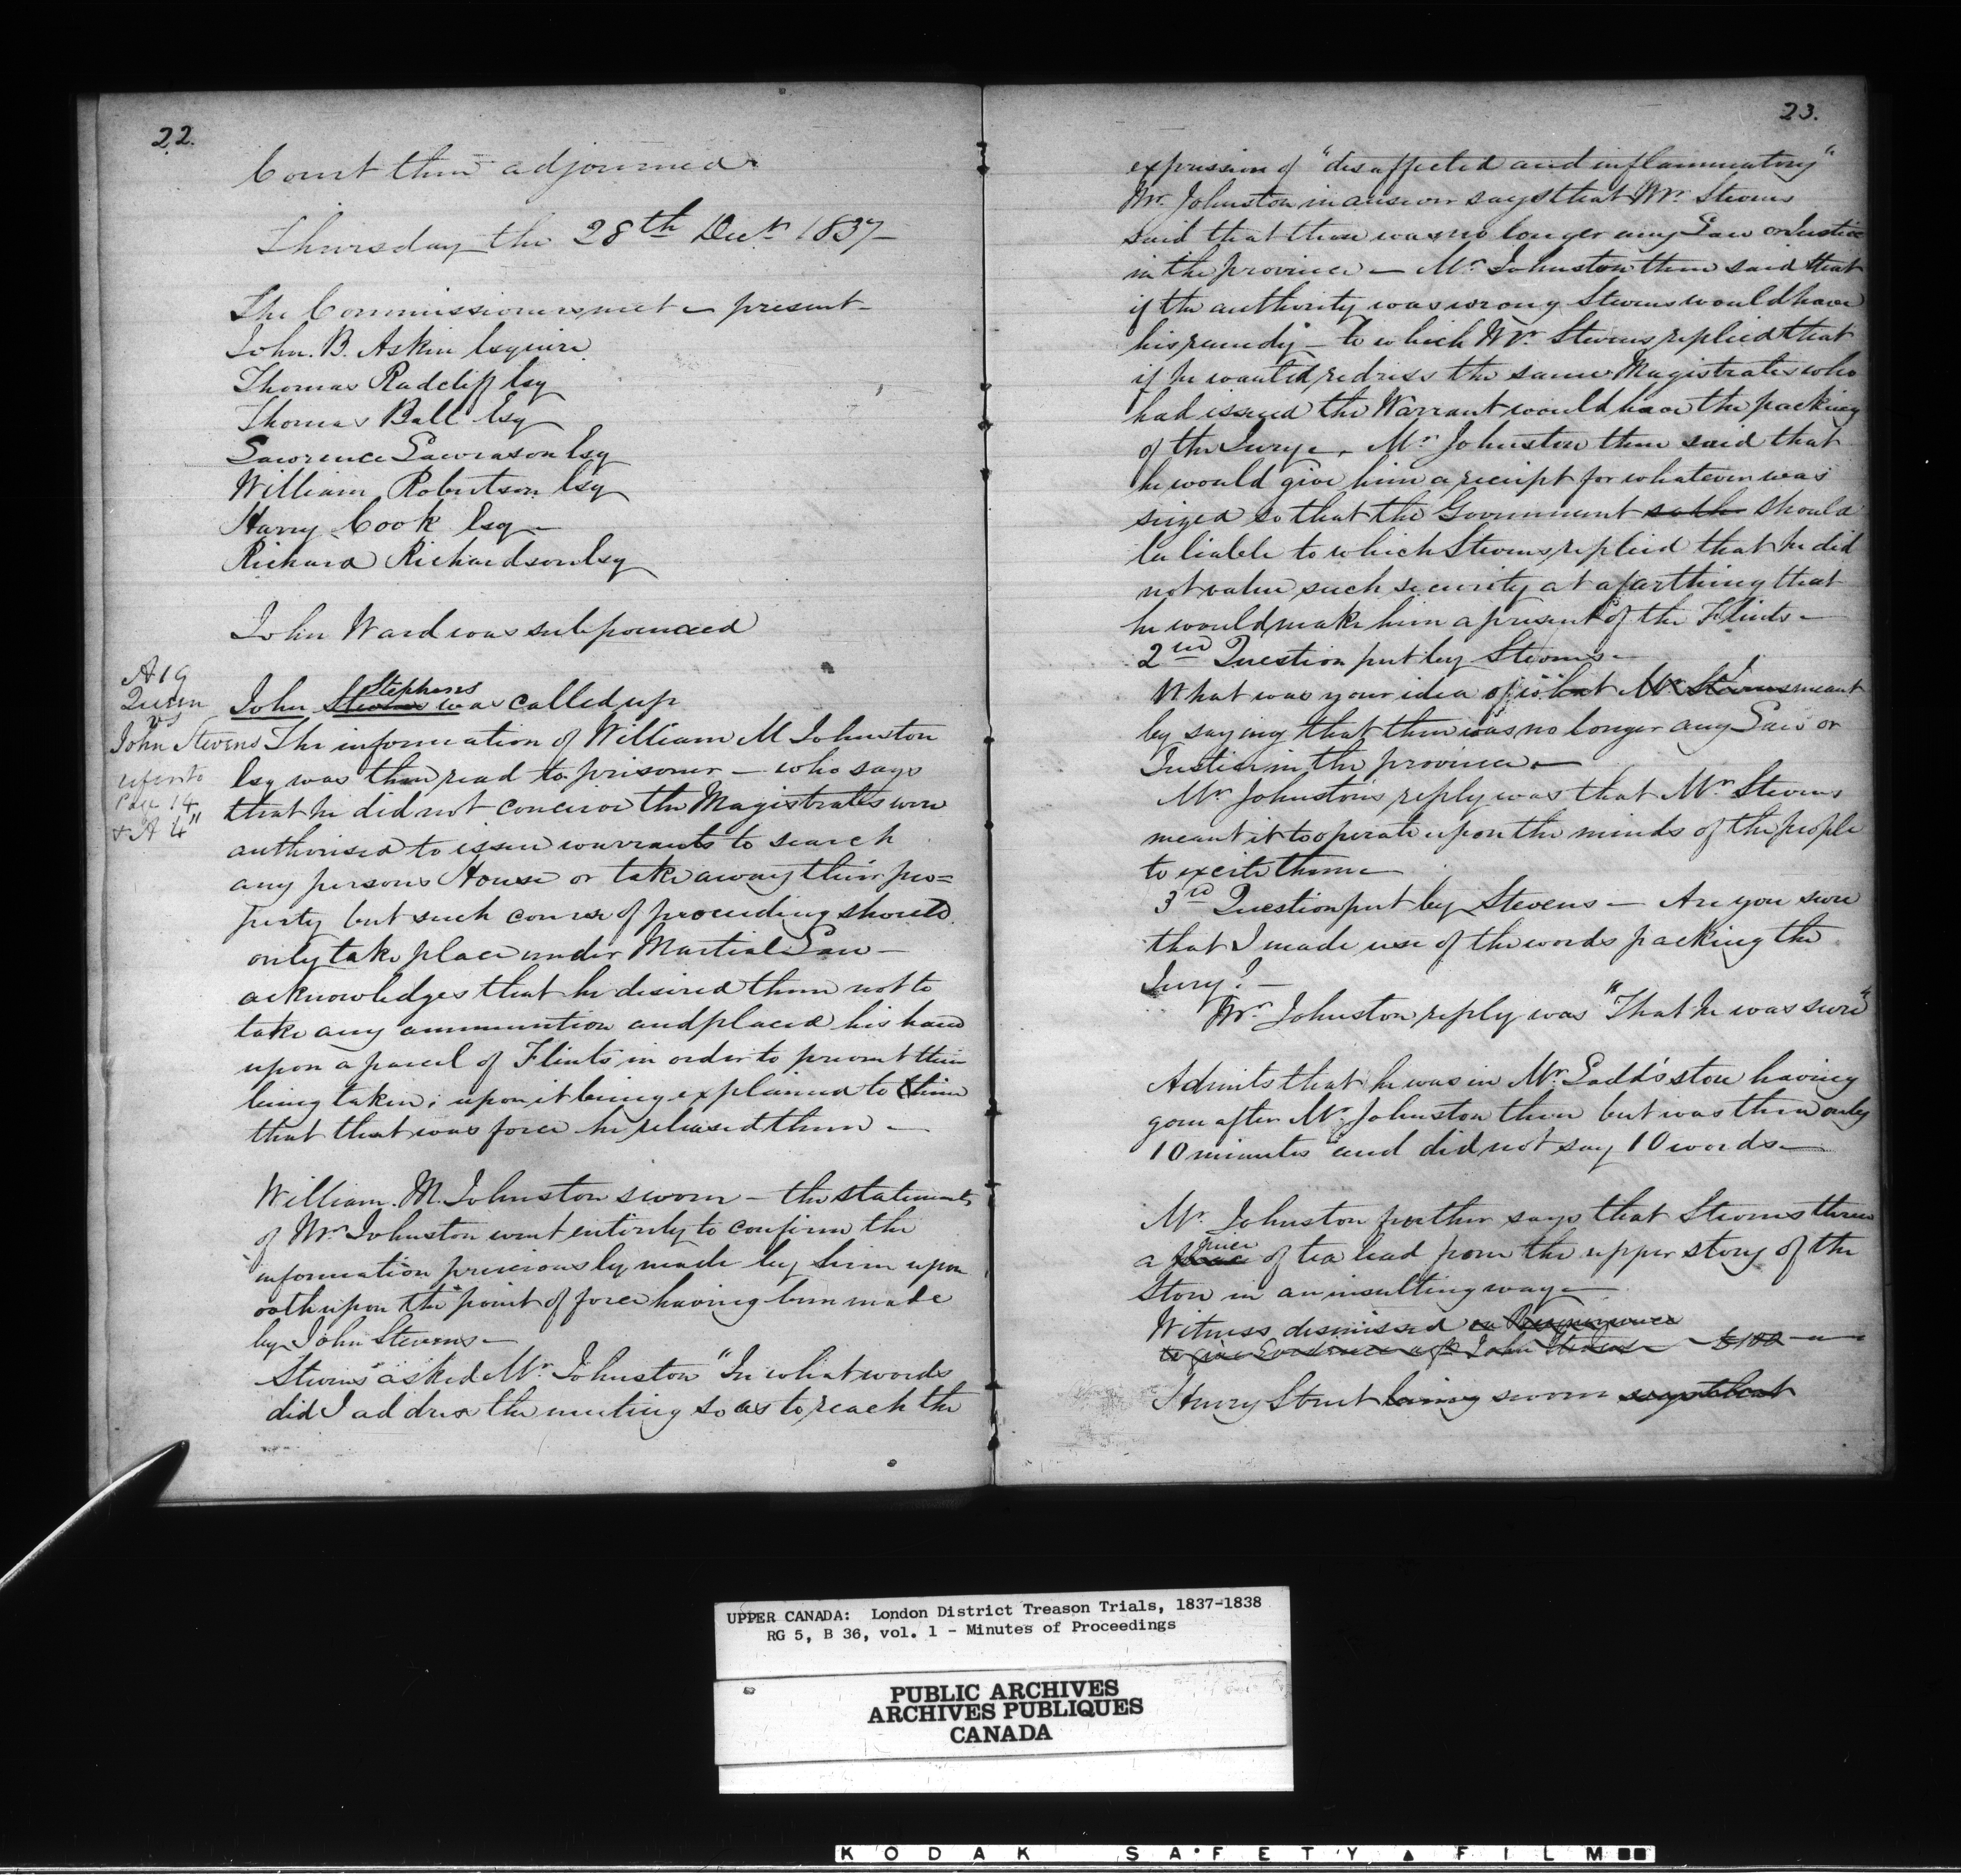 22.
Court then adjourned
Thursday the 28th Decr 1837
The Commissioners met – present –
John. B. Askin Esquire
Thomas Radcliff Esq
Thomas Ball Esq
Lawrence Lawrason Esq
William Robertson Esq
Harry Cook Esq –
Richard Richardson Esq
John Ward was subpoenaed
A 19
Queen
vs
John Stevens
refer to
Page 14
& A 4"
Stephens
John Stevens was called up
The information of William M Johnston
Esq was then read to prisoner – who says
that he did not conceive the Magistrates were
authorised to issue warrants to search
any persons House or take away their pro=
perty but such course of proceeding should
only take place under Martial Law –
acknowledges that he desired them not to
take any ammunition and placed his hand
upon a parcel of Flints in order to prevent their
being taken; upon it being explained to him
that that was force he released them –
William. M. Johnston sworn – the statements
of Mr Johnston went entirely to confirm the
information previously made by him upon
oath upon the point of force having been made
by John Stevens –
Stevens asked Mr Johnston "In what words
did I address the meeting so as to reach the
23.
expression of "disaffected and inflammatory"
Mr. Johnston in answer says that Mr. Stevens
said that there was no longer any Law or Justice
in the province – Mr Johnston then said that
if the authority was wrong Stevens would have
his remedy – to which Mr. Stevens replied that
if he wanted redress the same Magistrates who
had issued the Warrant would have the packing
of the Jury –. Mr Johnston then said that
he would give him a receipt for whatever was
seized so that the Government should
be liable to which Stevens replied that he did
not value such security at a farthing that
he would make him a present of the Flints –
2nd Question put by Stevens –
I
What was your idea of what Mr Stevens meant
by saying that there was no longer any Law or
Justice in the province –
Mr Johnstons reply was that Mr Stevens
meant it to operate upon the minds of the people
to excite them –
3rd Question put by Stevens – Are you sure
that I made use of the words packing the
Jury? –
Mr. Johnston reply was "That he was sure"
Admits that he was in Mr Ladd's store having
gone after Mr. Johnston there but was there only
10 minutes and did not say 10 words –
Mr. Johnston further says that Stevens threw
piece
a of tea lead from the upper story of the
Store in an insulting way –
Witness dismissed on Recognizance
to give Evidence agt John Stevens – £100 –
Henry Strut being sworn says that
UPPER CANADA: London District Treason Trials, 1837-1838
RG 5, B 36, vol. 1 - Minutes of Proceedings
PUBLIC ARCHIVES
ARCHIVES PUBLIQUES
CANADA
KODAK SAFETY FILM